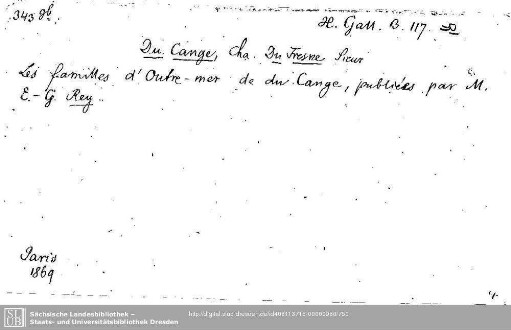 343 8b.
H. Gall. B. 117.
Du Cange, Cha. Du Fresne Sieur
Les familles d'Outre-mer de du Cange, publiées par M.
E.-G. Rey.
Paris
1869
SLUB
Sächsische Landesbibliothek –
Staats- und Universitätsbibliothek Dresden